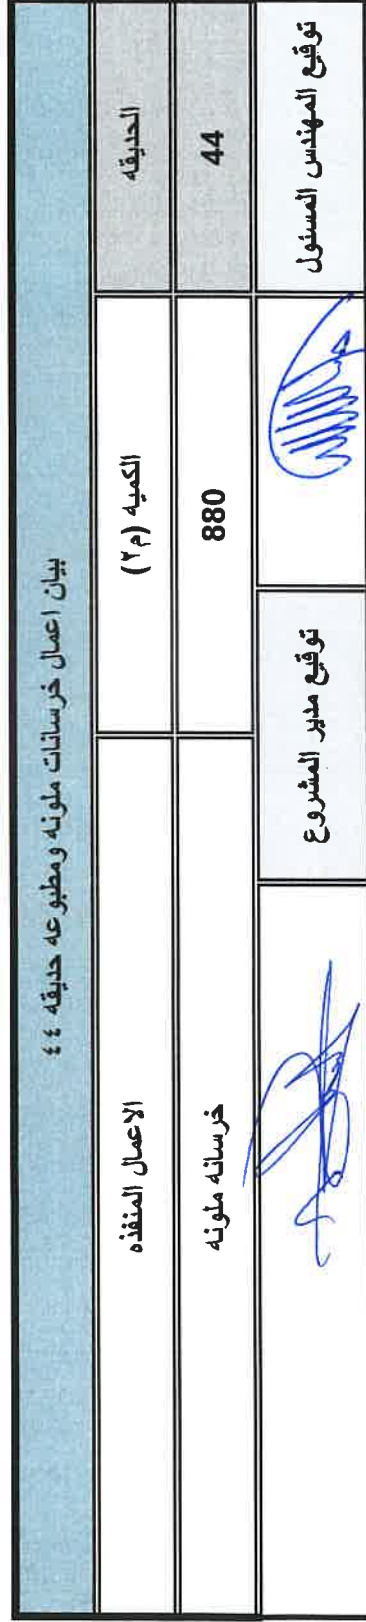 بيان اعمال خرسانات ملونه ومطبوعه حديقه ٤٤
الحديقه الكميه (م٢) الاعمال المنفذه
44 880 خرسانه ملونه
توقيع المهندس المسئول توقيع مدير المشروع